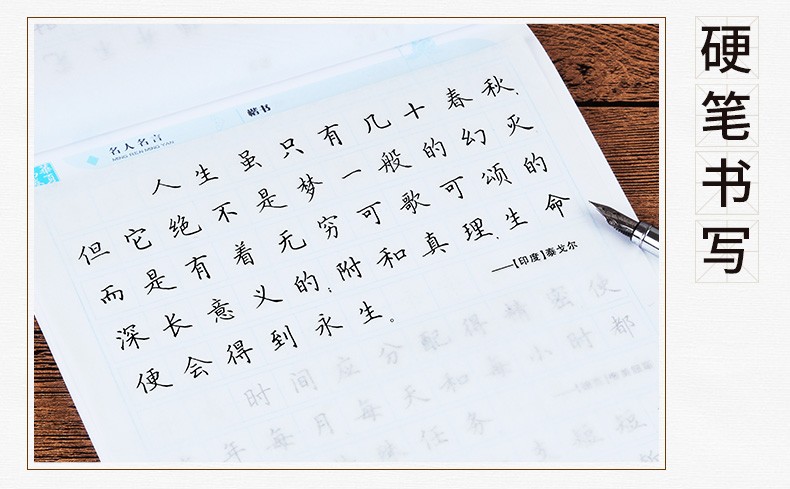 硬笔书写
楷书
名人名言
MING REN MING YAN
人生虽只有几十春秋，
但它绝不是梦一般的幻灭，
而是有着无穷可歌可颂的
深长意义的；附和真理，生命
便会得到永生。
——【印度】泰戈尔
时间应分配得精密使
年每月每天和每小时都
殊任务